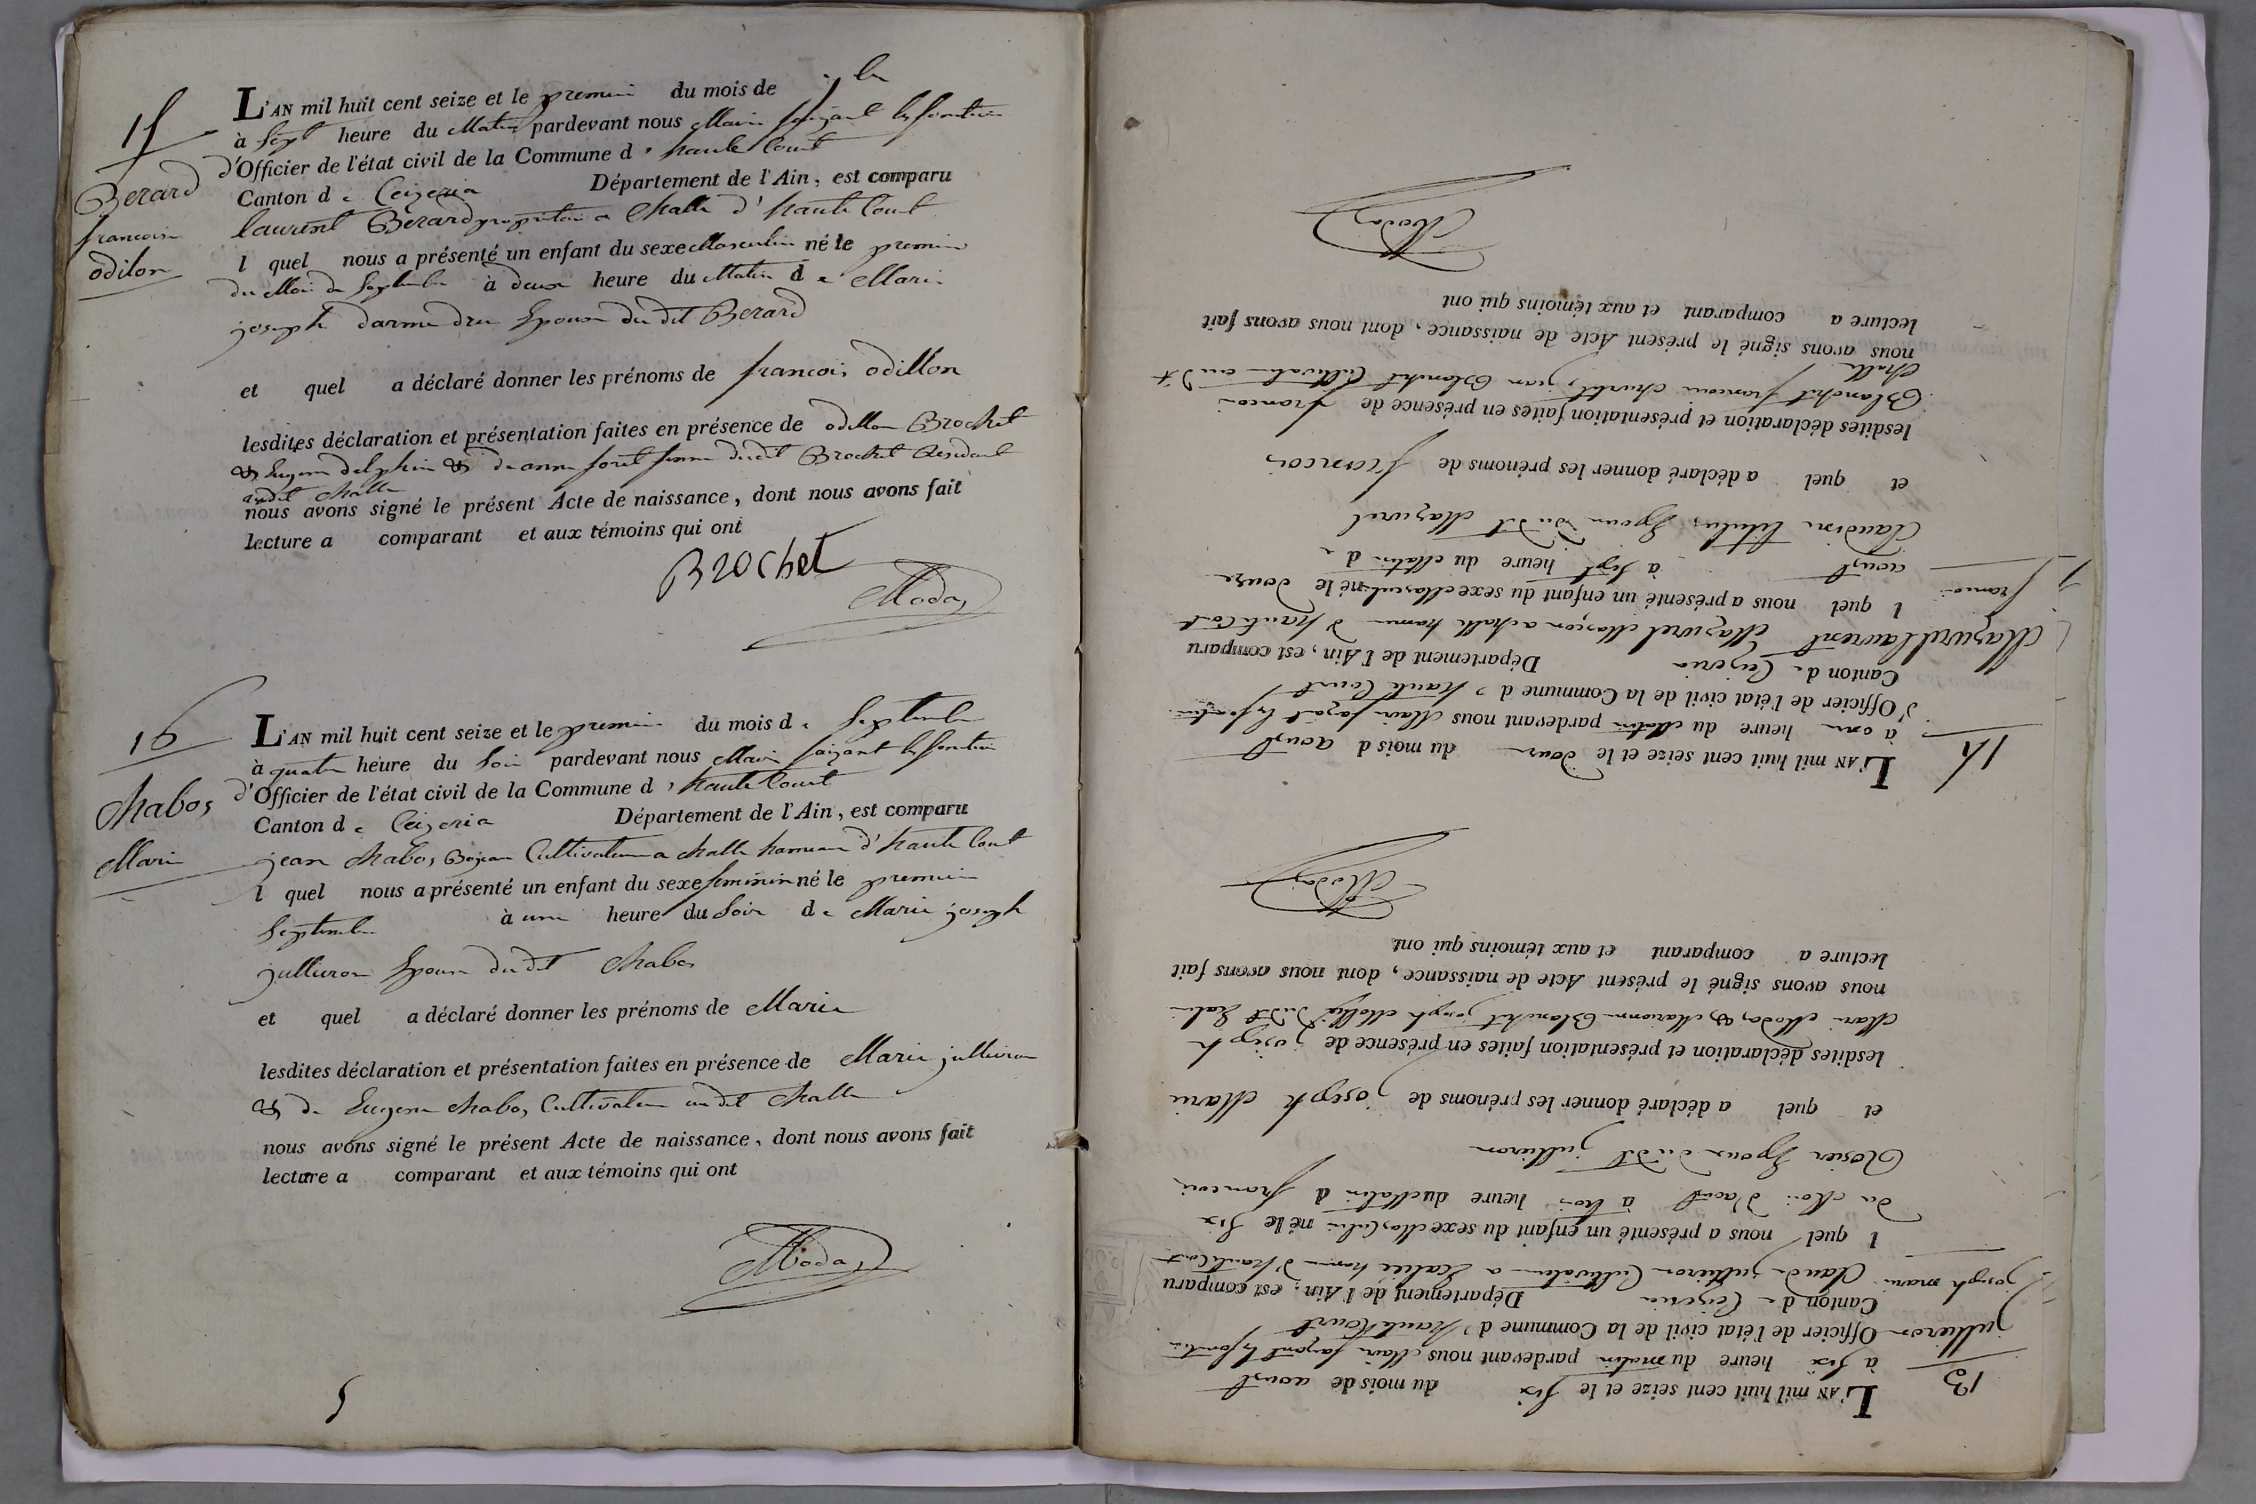 15
Berard
francois
odilon
L'AN mil huit cent seize et le premier du mois de 7bre
à sept heure du Matin pardevant nous Maire faizant les fonction
d'Officier de l'état civil de la Commune d' haute Court
Canton de Ceizeria Département de l'Ain, est comparu
laurent Berard propriétaire a Challe d' haute Court
l quel nous a présenté un enfant du sexe Masculin né le premier
du Moi de Septembre à deux heure du Matin de Marie
joseph darmedru Epouse du dit Berard
et quel a déclaré donner les prénoms de francois odillon
lesdites déclaration et présentation faites en présence de odillon Brochet
& Eugene delphin & de anne foret femme dudit Brochet Residant
audit Challe
nous avons signé le présent Acte de naissance, dont nous avons fait
lecture a comparant et aux témoins qui ont
Brochet
Modas
16
Chabos
Marie
L'AN mil huit cent seize et le premier du mois de Septembre
à quatre heure du Soir pardevant nous Maire faizant les fonction
d'Officier de l'état civil de la Commune d' haute Court
Canton de Ceizeria Département de l'Ain, est comparu
jean Chabos Bojean Cultivateur a Challe hameau d'haute Court
l quel nous a présenté un enfant du sexe feminin né le premier
Septembre à une heure du Soir de Marie joseph
jullieron Epouse du dit Chabos
et quel a déclaré donner les prénoms de Marie
lesdites déclaration et présentation faites en présence de Marie jullieron
& de Eugene Chabos Cultivateur au dit Challe
nous avons signé le présent Acte de naissance, dont nous avons fait
lecture a comparant et aux témoins qui ont
Modas
5
13
jullieron
joseph marie
L'AN mil huit cent seize et le six du mois de aoust
à six heure du matin pardevant nous Maire faizant les fonction
Officier de l'état civil de la Commune d' haute Court
Canton de Ceizeria Département de l'Ain, est comparu
Claude jullieron Cultivateur a hameau d'haute Court
l quel nous a présenté un enfant du sexe Masculin né le six
du Moi d'aout à trois heure du Matin d francoise
Rosier Epouse du dit jullieron
et quel a déclaré donner les prénoms de joseph Marie
lesdites déclaration et présentation faites en présence de joseph
Marie Modas & Marianne Blanchet joseph dudit
nous avons signé le présent Acte de naissance, dont nous avons fait
lecture a comparant et aux témoins qui ont
Modas
14
Mazuret
francois
L'AN mil huit cent seize et le douze du mois d aoust
à onze heure du Matin pardevant nous Maire fazant les fonction
d'Officier de l'état civil de la Commune d' haute Court
Canton de Ceizeria Département de l'Ain, est comparu
laurent Mazuret Maçon a Challe hameau d'haute Court
l quel nous a présenté un enfant du sexe Masculin né le douze
aoust à sept heure du Matin de
Claudine Epouse du dit Mazuret
et quel a déclaré donner les prénoms de francois
lesdites déclaration et présentation faites en présence de francois
Blanchet francoise jean Blanchet Cultivateur au dit
Challe
nous avons signé le présent Acte de naissance, dont nous avons fait
lecture a comparant et aux témoins qui ont
Modas